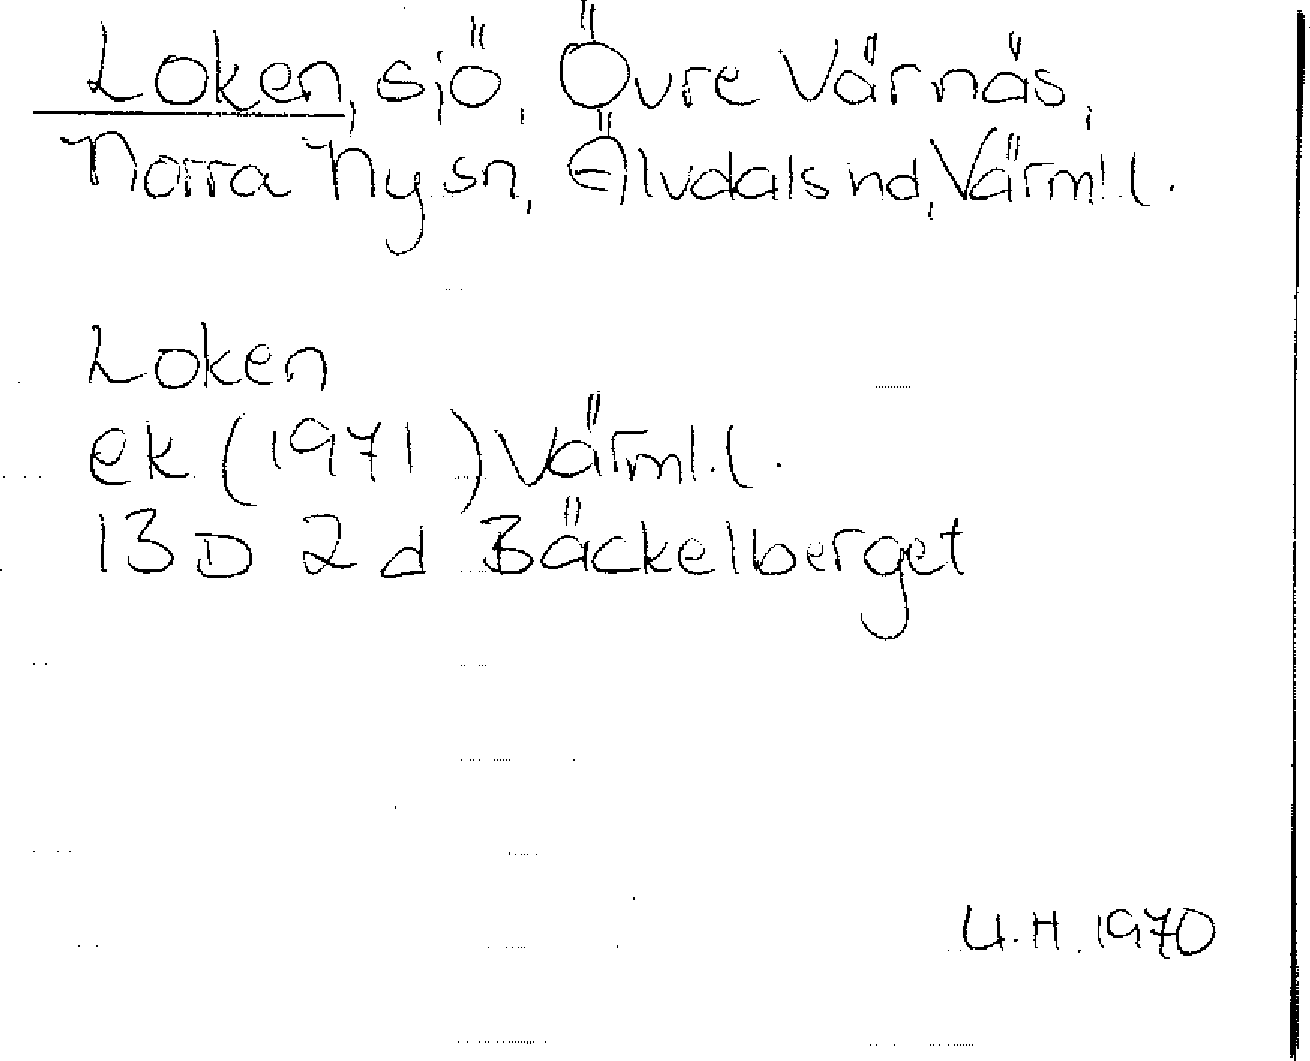 Loken, sjö, Övre Värnäs,
Norra Ny sn, Älvdals hd, Värml. l.
Loken
ek (1971) Värml. l.
13 D 2 d Bäckelberget
U.H. 1970